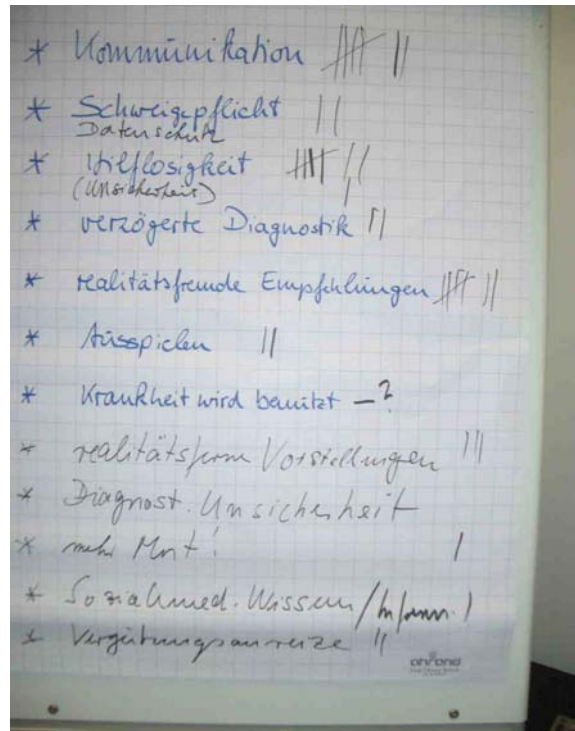 * Kommunikation
* Schweigepflicht
Datenschutz
* Hilflosigkeit
(Unsicherheit)
* verzögerte Diagnostik
* realitätsfremde Empfehlungen
* Ausspielen
* Krankheit wird benützt – ?
* realitätsferne Vorstellungen
* Diagnost. Unsicherheit
* mehr Mut!
* Sozialmed. Wissen / Inform.
* Vergütungsanreize